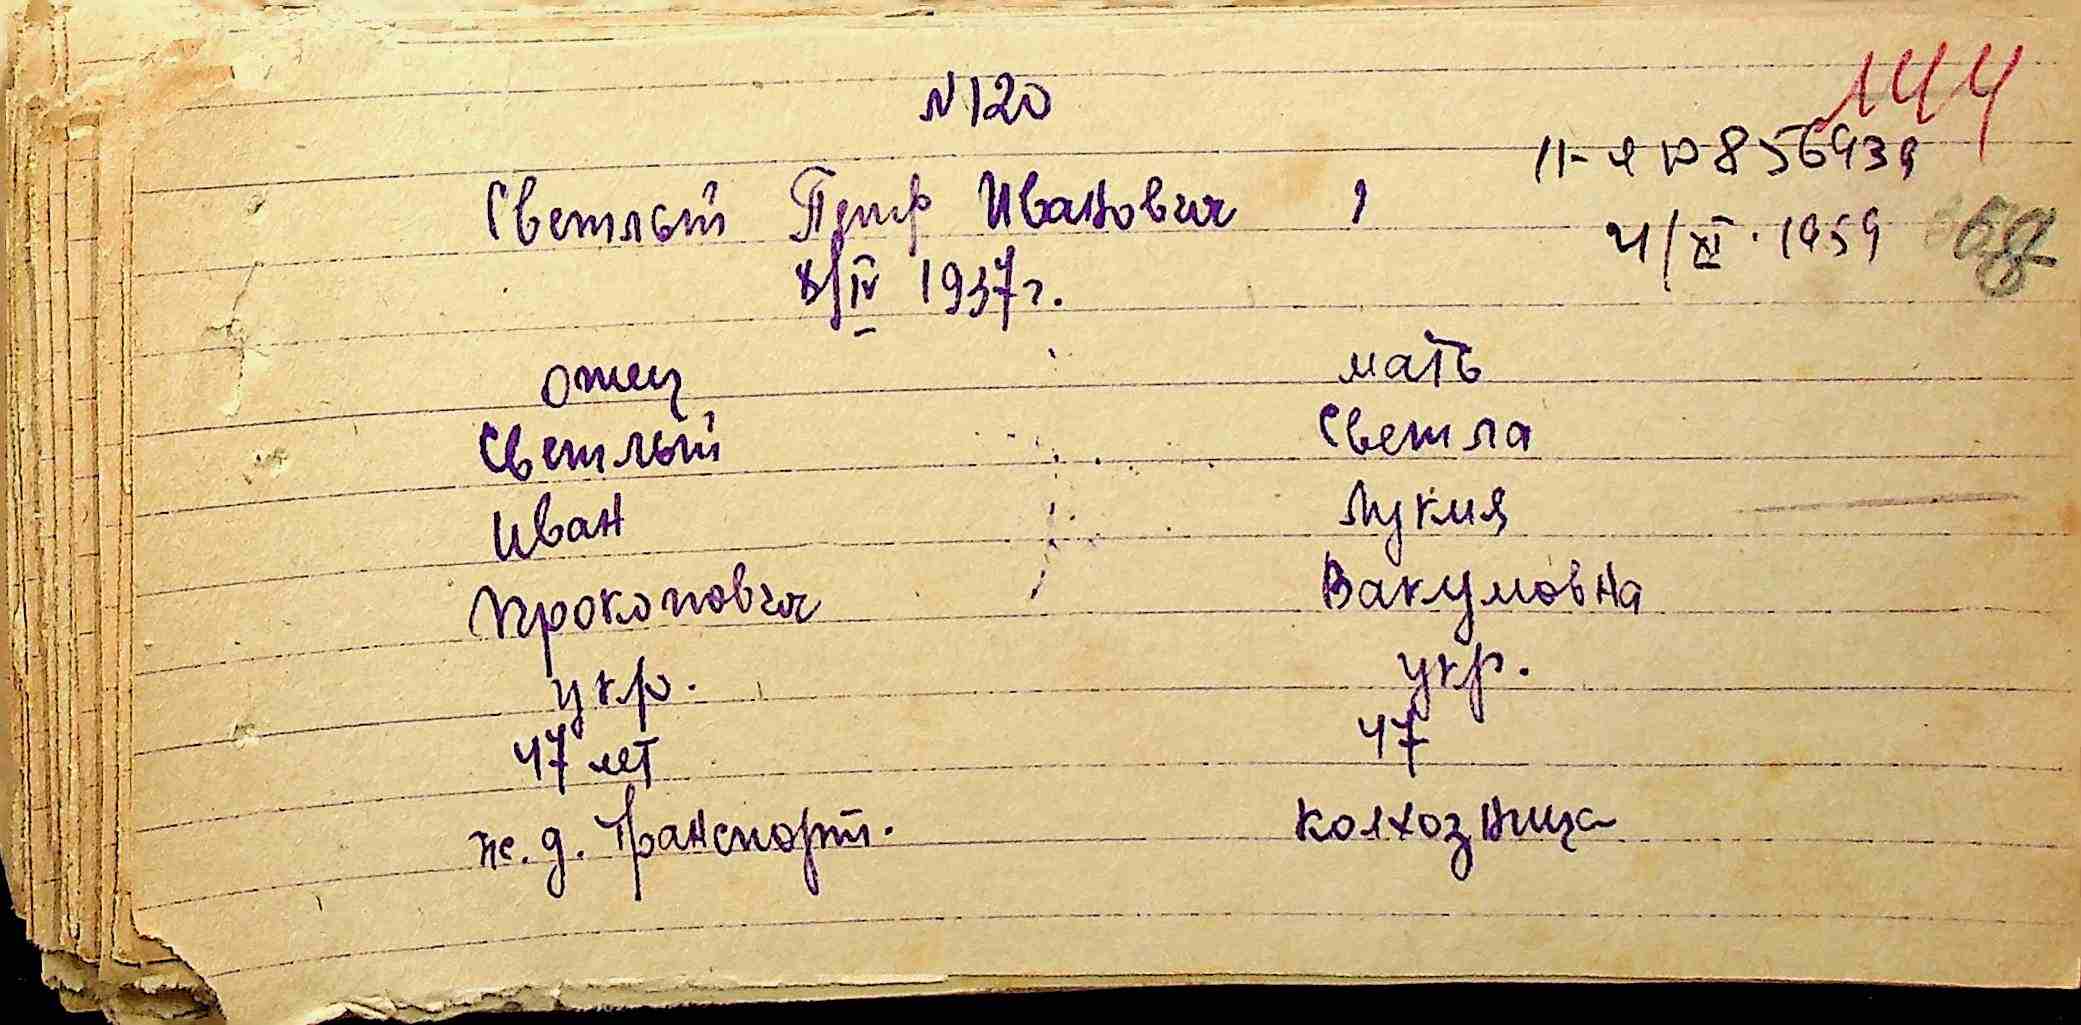 144
№120
II-ЯЮ 856939
Светлый Петр Иванович
4/XI. 1959
68
8/IV 1937 г.
отец мать
Светлый Светла
Иван Лукия
Прокопович Вакумовна
укр. укр.
47 лет 47
же. д. Транспорт. колхозница